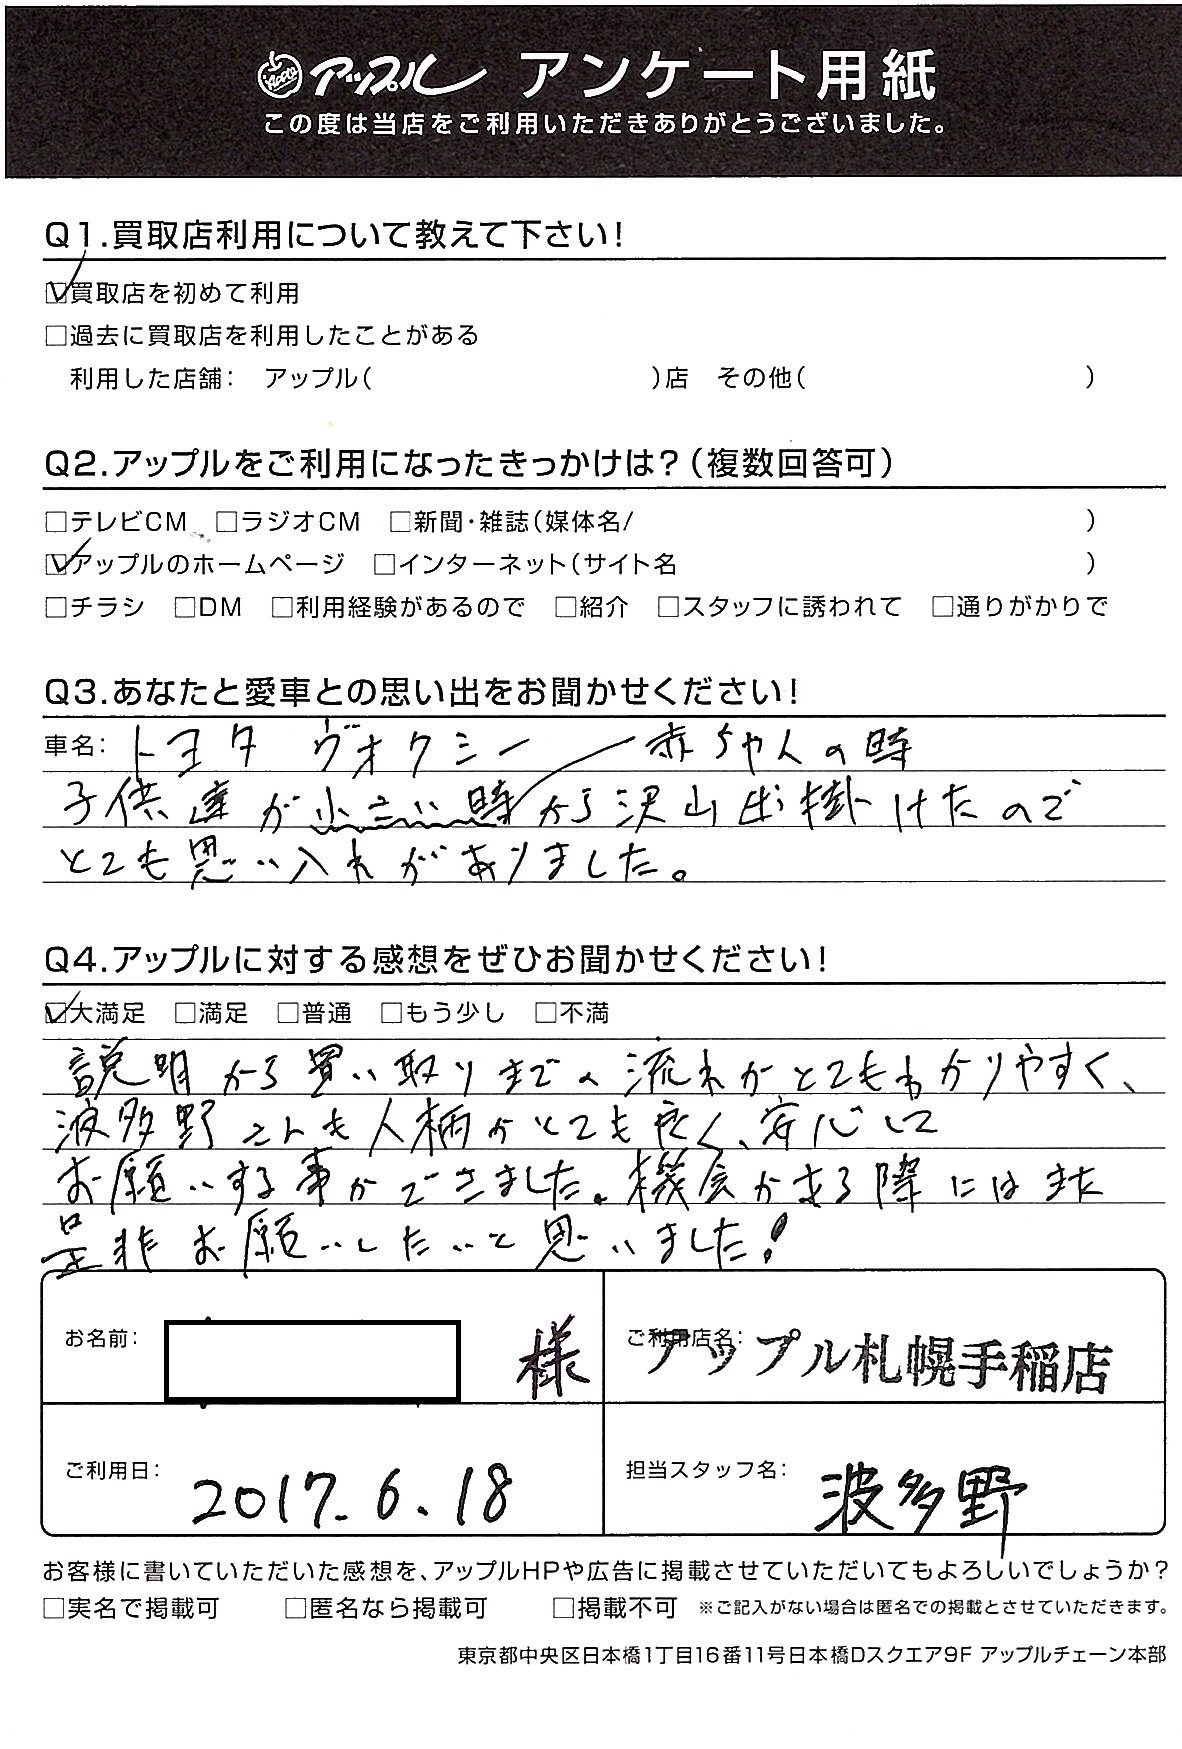 Apple アップル アンケート用紙
この度は当店をご利用いただきありがとうございました。
Q1.買取店利用について教えて下さい!
☑買取店を初めて利用
□過去に買取店を利用したことがある
利用した店舗: アップル( )店 その他( )
Q2.アップルをご利用になったきっかけは?(複数回答可)
□テレビCM □ラジオCM □新聞・雑誌(媒体名/ )
☑アップルのホームページ □インターネット(サイト名 )
□チラシ □DM □利用経験があるので □紹介 □スタッフに誘われて □通りがかりで
Q3.あなたと愛車との思い出をお聞かせください!
車名: トヨタ ヴォクシー 赤ちゃんの時
子供達が小さい時から沢山出掛けたので
とても思い入れがありました。
Q4.アップルに対する感想をぜひお聞かせください!
☑大満足 □満足 □普通 □もう少し □不満
説明から買い取りまでの流れがとてもわかりやすく、
波多野さんも人柄がとても良く、安心して
お願いする事ができました。機会がある際にはまた
是非お願いしたいと思いました!
お名前: 様
ご利用店名: アップル札幌手稲店
ご利用日: 2017.6.18
担当スタッフ名: 波多野
お客様に書いていただいた感想を、アップルHPや広告に掲載させていただいてもよろしいでしょうか?
□実名で掲載可 □匿名なら掲載可 □掲載不可 ※ご記入がない場合は匿名での掲載とさせていただきます。
東京都中央区日本橋1丁目16番11号日本橋Dスクエア9F アップルチェーン本部